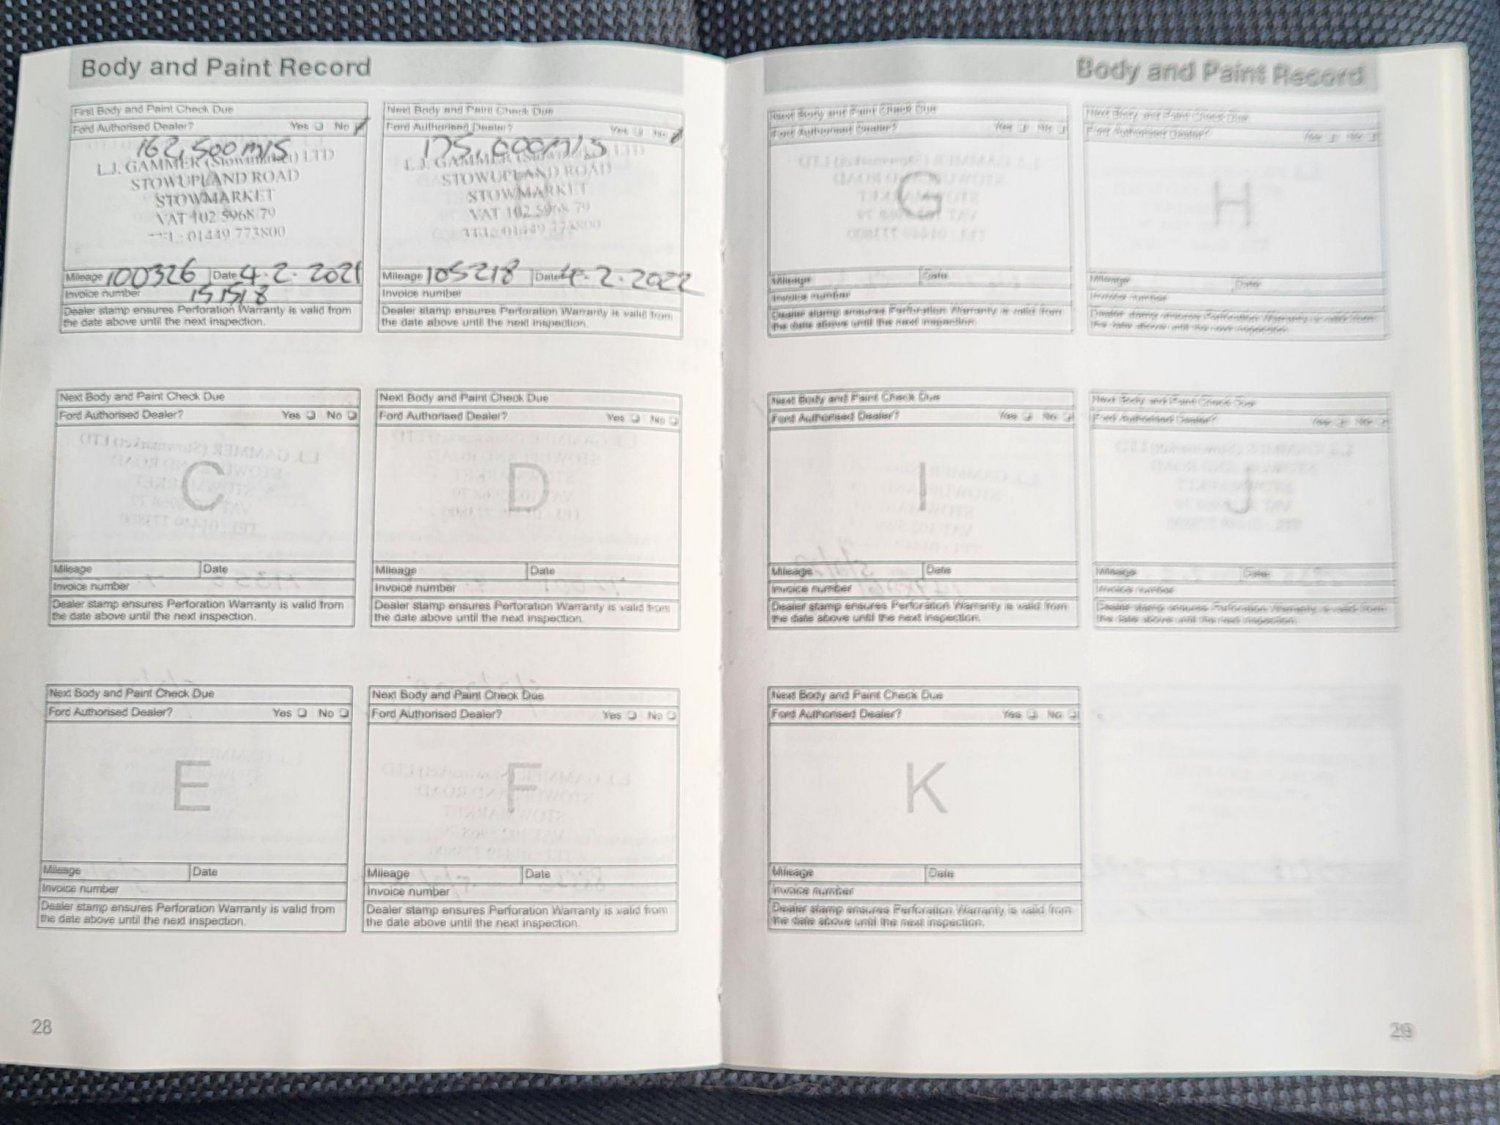 Body and Paint Record
First Body and Paint Check Due
Ford Authorised Dealer? Yes No
162,500 m/s
L.J. GAMMER (Stowmarket) LTD
STOWUPLAND ROAD
STOWMARKET
VAT 102 5968 79
TEL: 01449 773800
Mileage 100326 Date 4.2.2021
Invoice number 151518
Dealer stamp ensures Perforation Warranty is valid from
the date above until the next inspection.
Next Body and Paint Check Due
Ford Authorised Dealer? Yes No
175,000 m/s
L.J. GAMMER LTD
STOWUPLAND ROAD
STOWMARKET
VAT 102 5968 79
TEL: 01449 773800
Mileage 105218 Date 4.2.2022
Invoice number
Dealer stamp ensures Perforation Warranty is valid from
the date above until the next inspection.
Next Body and Paint Check Due
Ford Authorised Dealer? Yes No
C
Mileage Date
Invoice number
Dealer stamp ensures Perforation Warranty is valid from
the date above until the next inspection.
Next Body and Paint Check Due
Ford Authorised Dealer? Yes No
D
Mileage Date
Invoice number
Dealer stamp ensures Perforation Warranty is valid from
the date above until the next inspection.
Next Body and Paint Check Due
Ford Authorised Dealer? Yes No
E
Mileage Date
Invoice number
Dealer stamp ensures Perforation Warranty is valid from
the date above until the next inspection.
Next Body and Paint Check Due
Ford Authorised Dealer? Yes No
F
Mileage Date
Invoice number
Dealer stamp ensures Perforation Warranty is valid from
the date above until the next inspection.
28
Body and Paint Record
Next Body and Paint Check Due
Ford Authorised Dealer? Yes No
G
Mileage Date
Invoice number
Dealer stamp ensures Perforation Warranty is valid from
the date above until the next inspection.
Next Body and Paint Check Due
Ford Authorised Dealer? Yes No
H
Mileage Date
Invoice number
Dealer stamp ensures Perforation Warranty is valid from
the date above until the next inspection.
Next Body and Paint Check Due
Ford Authorised Dealer? Yes No
I
Mileage Date
Invoice number
Dealer stamp ensures Perforation Warranty is valid from
the date above until the next inspection.
Next Body and Paint Check Due
Ford Authorised Dealer? Yes No
J
Mileage Date
Invoice number
Dealer stamp ensures Perforation Warranty is valid from
the date above until the next inspection.
Next Body and Paint Check Due
Ford Authorised Dealer? Yes No
K
Mileage Date
Invoice number
Dealer stamp ensures Perforation Warranty is valid from
the date above until the next inspection.
29